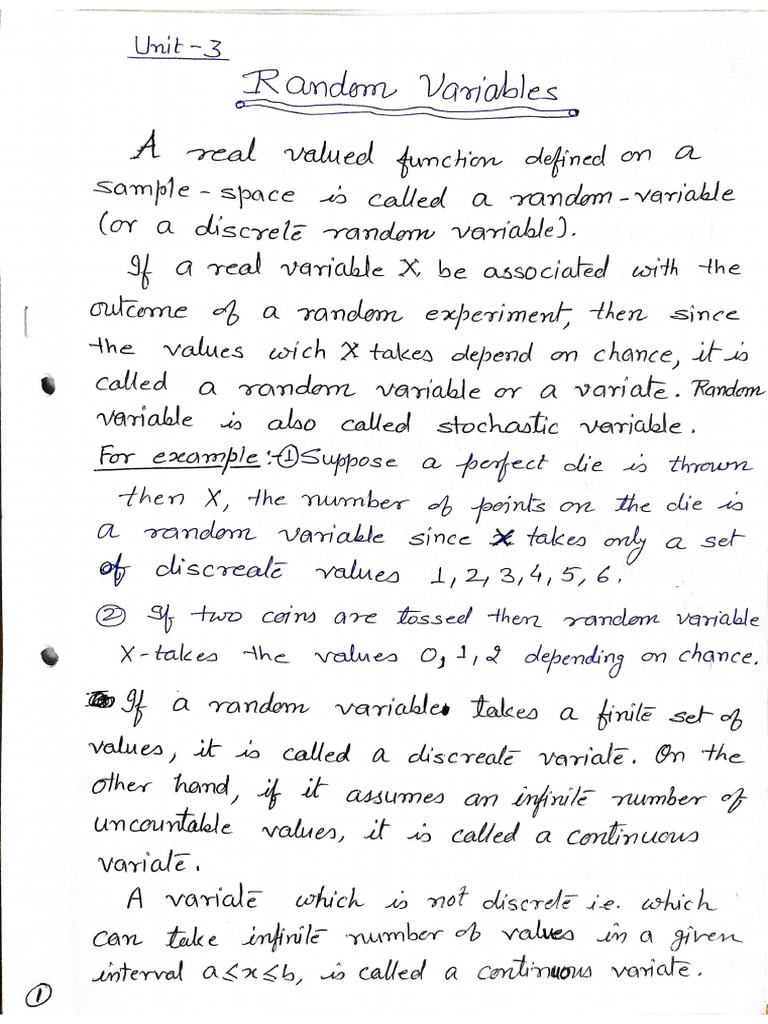 Unit-3
Random Variables
A real valued function defined on a
sample-space is called a random-variable
(or a discrete random variable).
If a real variable X be associated with the
outcome of a random experiment, then since
the values wich X takes depend on chance, it is
called a random variable or a variate. Random
variable is also called stochastic variable.
For example:-① Suppose a perfect die is thrown
then X, the number of points on the die is
a random variable since X takes only a set
of discreate values 1, 2, 3, 4, 5, 6.
② If two coins are tossed then random variable
X-takes the values 0, 1, 2 depending on chance.
If a random variable takes a finite set of
values, it is called a discreate variate. On the
other hand, if it assumes an infinite number of
uncountable values, it is called a continuous
variate.
A variate which is not discrete i.e. which
can take infinite number of values in a given
interval a≤x≤b, is called a continuous variate.
①